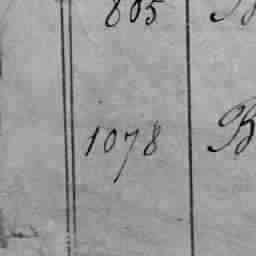 805
1078 B